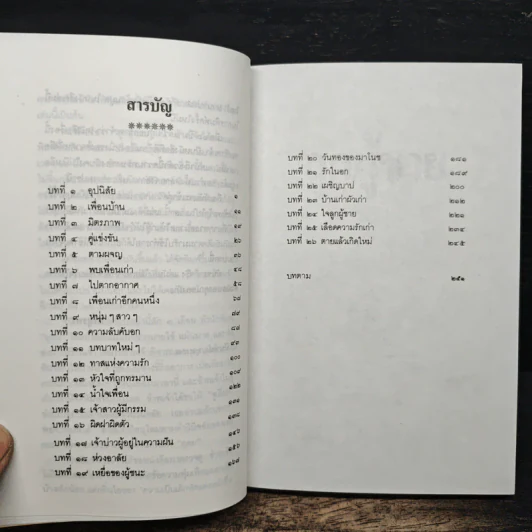 สารบัญ
บทที่ ๑ อุปนิสัย ๑
บทที่ ๒ เพื่อนบ้าน ๑๑
บทที่ ๓ มิตรภาพ ๑๙
บทที่ ๔ คู่แข่งขัน ๒๖
บทที่ ๕ ตามผจญ ๓๖
บทที่ ๖ พบเพื่อนเก่า ๔๘
บทที่ ๗ ไปตากอากาศ ๕๘
บทที่ ๘ เพื่อนเก่าอีกคนหนึ่ง ๖๘
บทที่ ๙ หนุ่ม ๆ สาว ๆ ๗๗
บทที่ ๑๐ ความลับคับอก ๘๗
บทที่ ๑๑ บทบาทใหม่ ๆ ๙๓
บทที่ ๑๒ ทาสแห่งความรัก ๑๐๐
บทที่ ๑๓ หัวใจที่ถูกทรมาน ๑๐๙
บทที่ ๑๔ น้ำใจเพื่อน ๑๒๒
บทที่ ๑๕ เจ้าสาวผู้มีกรรม ๑๓๑
บทที่ ๑๖ ผิดฝาผิดตัว ๑๓๘
บทที่ ๑๗ เจ้าบ่าวผู้อยู่ในความฝัน ๑๔๖
บทที่ ๑๘ ห่วงอาลัย ๑๕๖
บทที่ ๑๙ เหยื่อของผู้ชนะ ๑๖๘
บทที่ ๒๐ วันทองของมาโนช ๑๘๑
บทที่ ๒๑ รักในอก ๑๘๙
บทที่ ๒๒ เผชิญบาป ๒๐๐
บทที่ ๒๓ บ้านเก่าผัวเก่า ๒๑๒
บทที่ ๒๔ ใจลูกผู้ชาย ๒๒๑
บทที่ ๒๕ เลือดความรักเก่า ๒๓๔
บทที่ ๒๖ ตายแล้วเกิดใหม่ ๒๔๕
บทตาม ๒๕๑